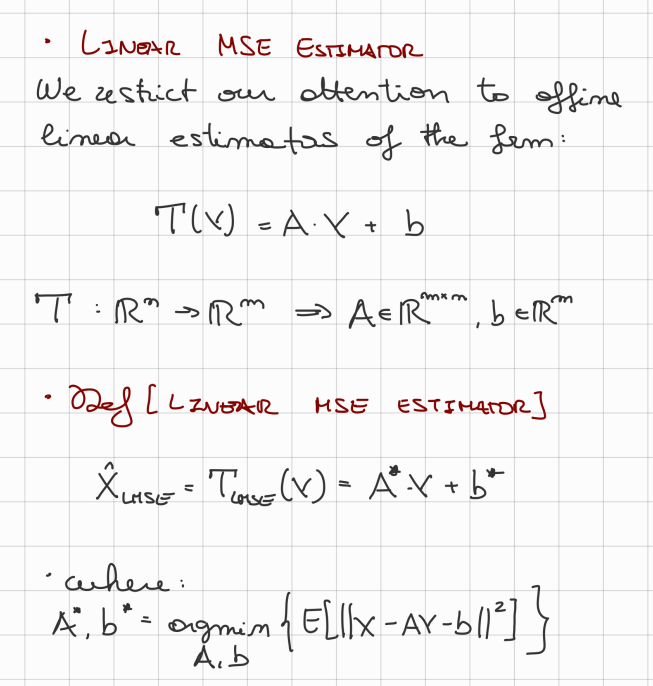 · LINEAR MSE ESTIMATOR
We restrict our attention to affine
linear estimators of the form:
T(Y) = A·Y + b
T : ℝⁿ → ℝᵐ ⟹ A ∈ ℝᵐˣⁿ, b ∈ ℝᵐ
· Def [LINEAR MSE ESTIMATOR]
X̂_LMSE = T_LMSE(Y) = A*·Y + b*
· where:
A*, b* = argmin_{A,b} { E[||X - AY - b||²] }